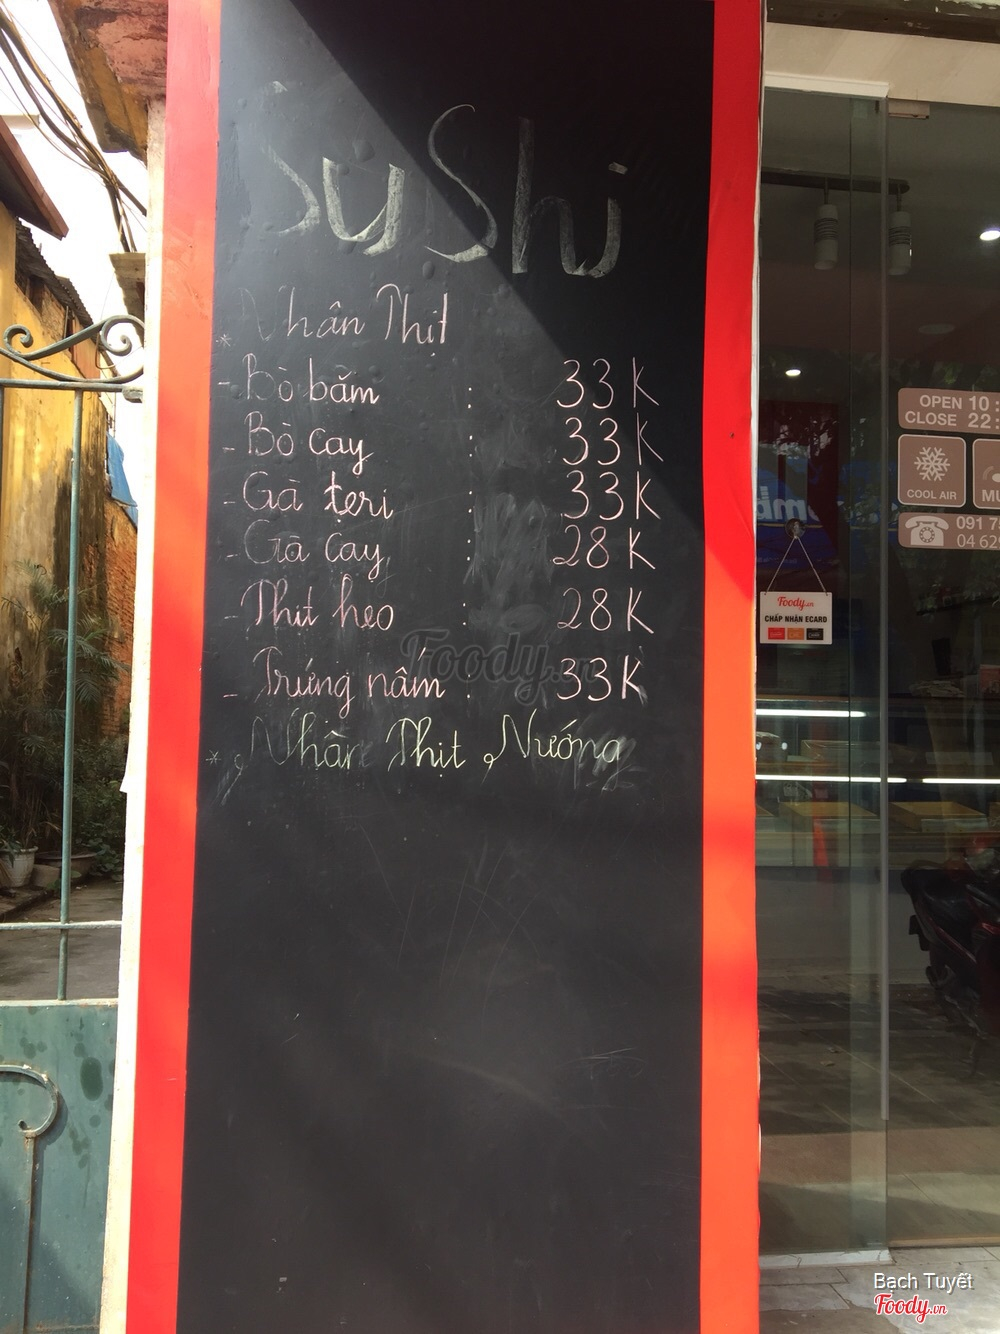 SuShi
* Nhân Thịt
- Bò băm : 33 K
- Bò cay : 33 K
- Gà teri : 33 K
- Gà cay : 28 K
- Thịt heo : 28 K
- Trứng nấm : 33 K
* Nhân Thịt Nướng
OPEN 10:
CLOSE 22:
COOL AIR
091 7
04 629
Foody.vn
CHẤP NHẬN ECARD
Foody.vn
Bạch Tuyết
Foody.vn